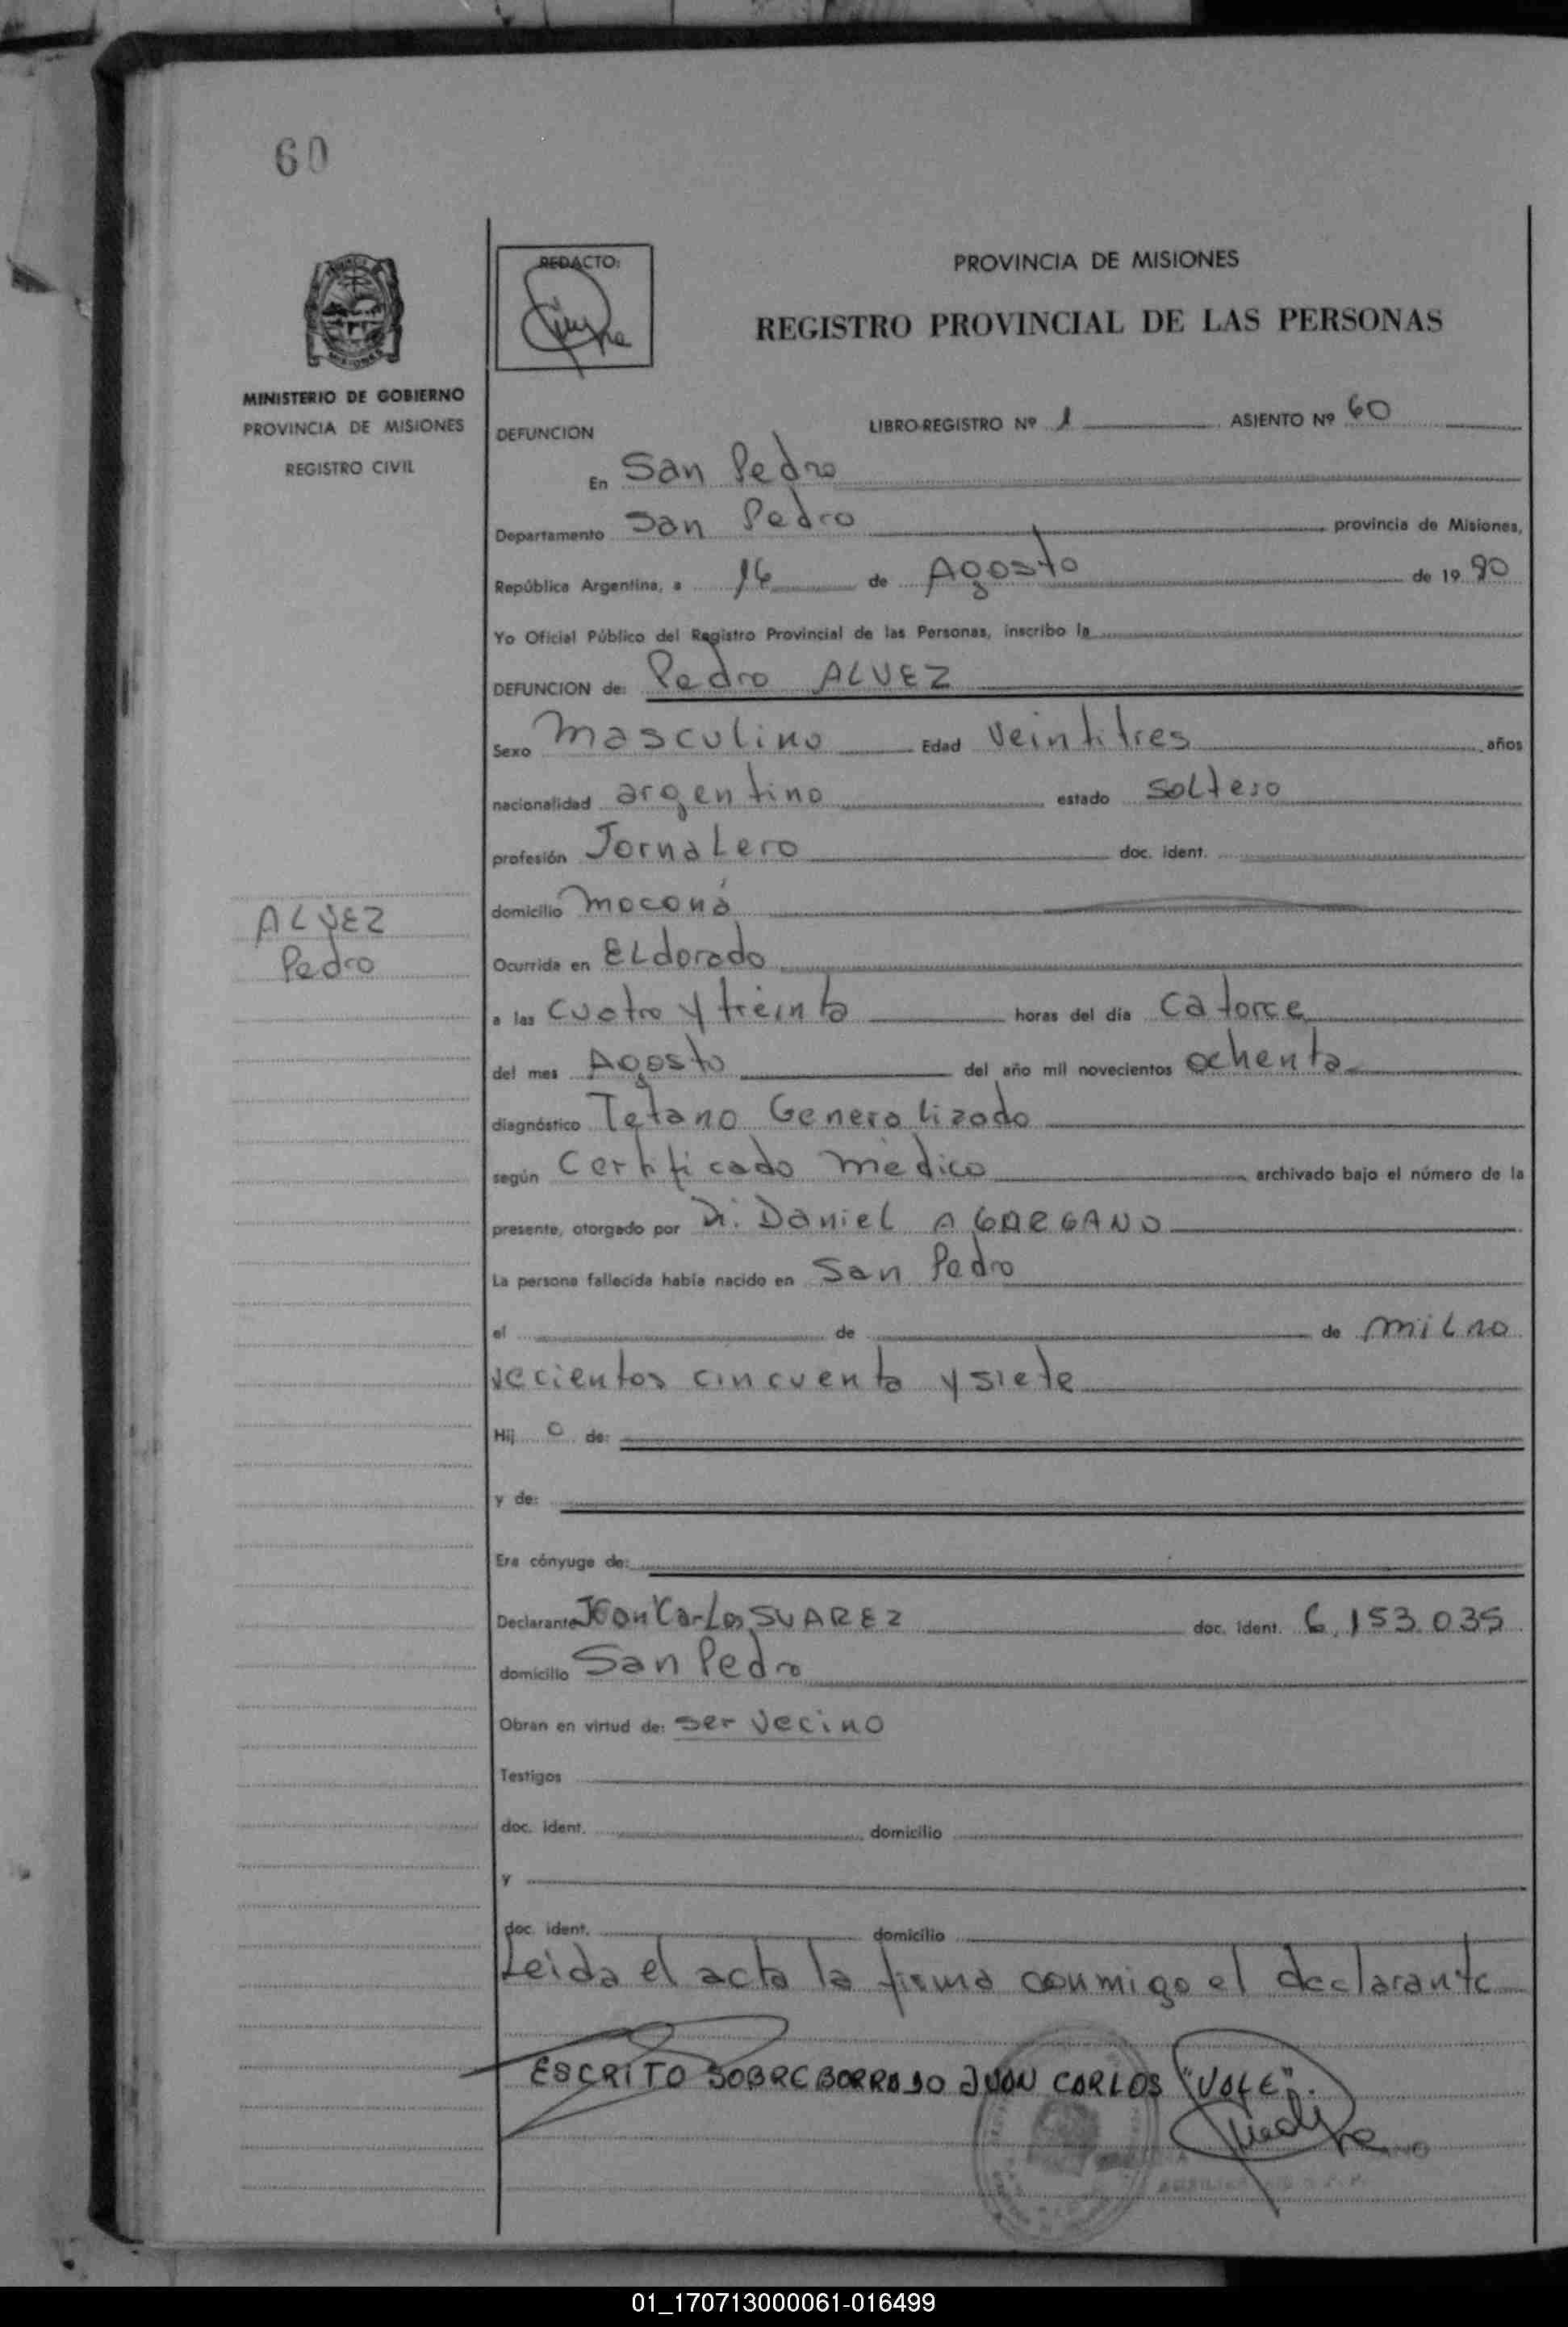 60
MINISTERIO DE GOBIERNO
PROVINCIA DE MISIONES
REGISTRO CIVIL
ALVEZ
Pedro
REDACTO:
PROVINCIA DE MISIONES
REGISTRO PROVINCIAL DE LAS PERSONAS
DEFUNCION LIBRO-REGISTRO Nº 1 ASIENTO Nº 60
En San Pedro
Departamento San Pedro provincia de Misiones,
República Argentina, a 16 de Agosto de 19 80
Yo Oficial Público del Registro Provincial de las Personas, inscribo la
DEFUNCION de: Pedro ALVEZ
Sexo Masculino Edad Veintitres años
nacionalidad argentino estado soltero
profesión Jornalero doc. ident.
domicilio Moconá
Ocurrida en Eldorado
a las cuatro y treinta horas del día catorce
del mes Agosto del año mil novecientos ochenta
diagnóstico Tetano Generalizado
según Certificado medico archivado bajo el número de la
presente, otorgado por Dr. Daniel A GARGANO
La persona fallecida había nacido en San Pedro
el de de mil no
vecientos cincuenta y siete
Hij o de:
y de:
Era cónyuge de:
Declarante Juan Carlos SUAREZ doc. ident. 6.153.035
domicilio San Pedro
Obran en virtud de: ser vecino
Testigos
doc. ident. domicilio
y
doc. ident. domicilio
Leida el acta la firma conmigo el declarante
ESCRITO SOBRE BORRADO JUAN CARLOS "VALE".
01_170713000061-016499